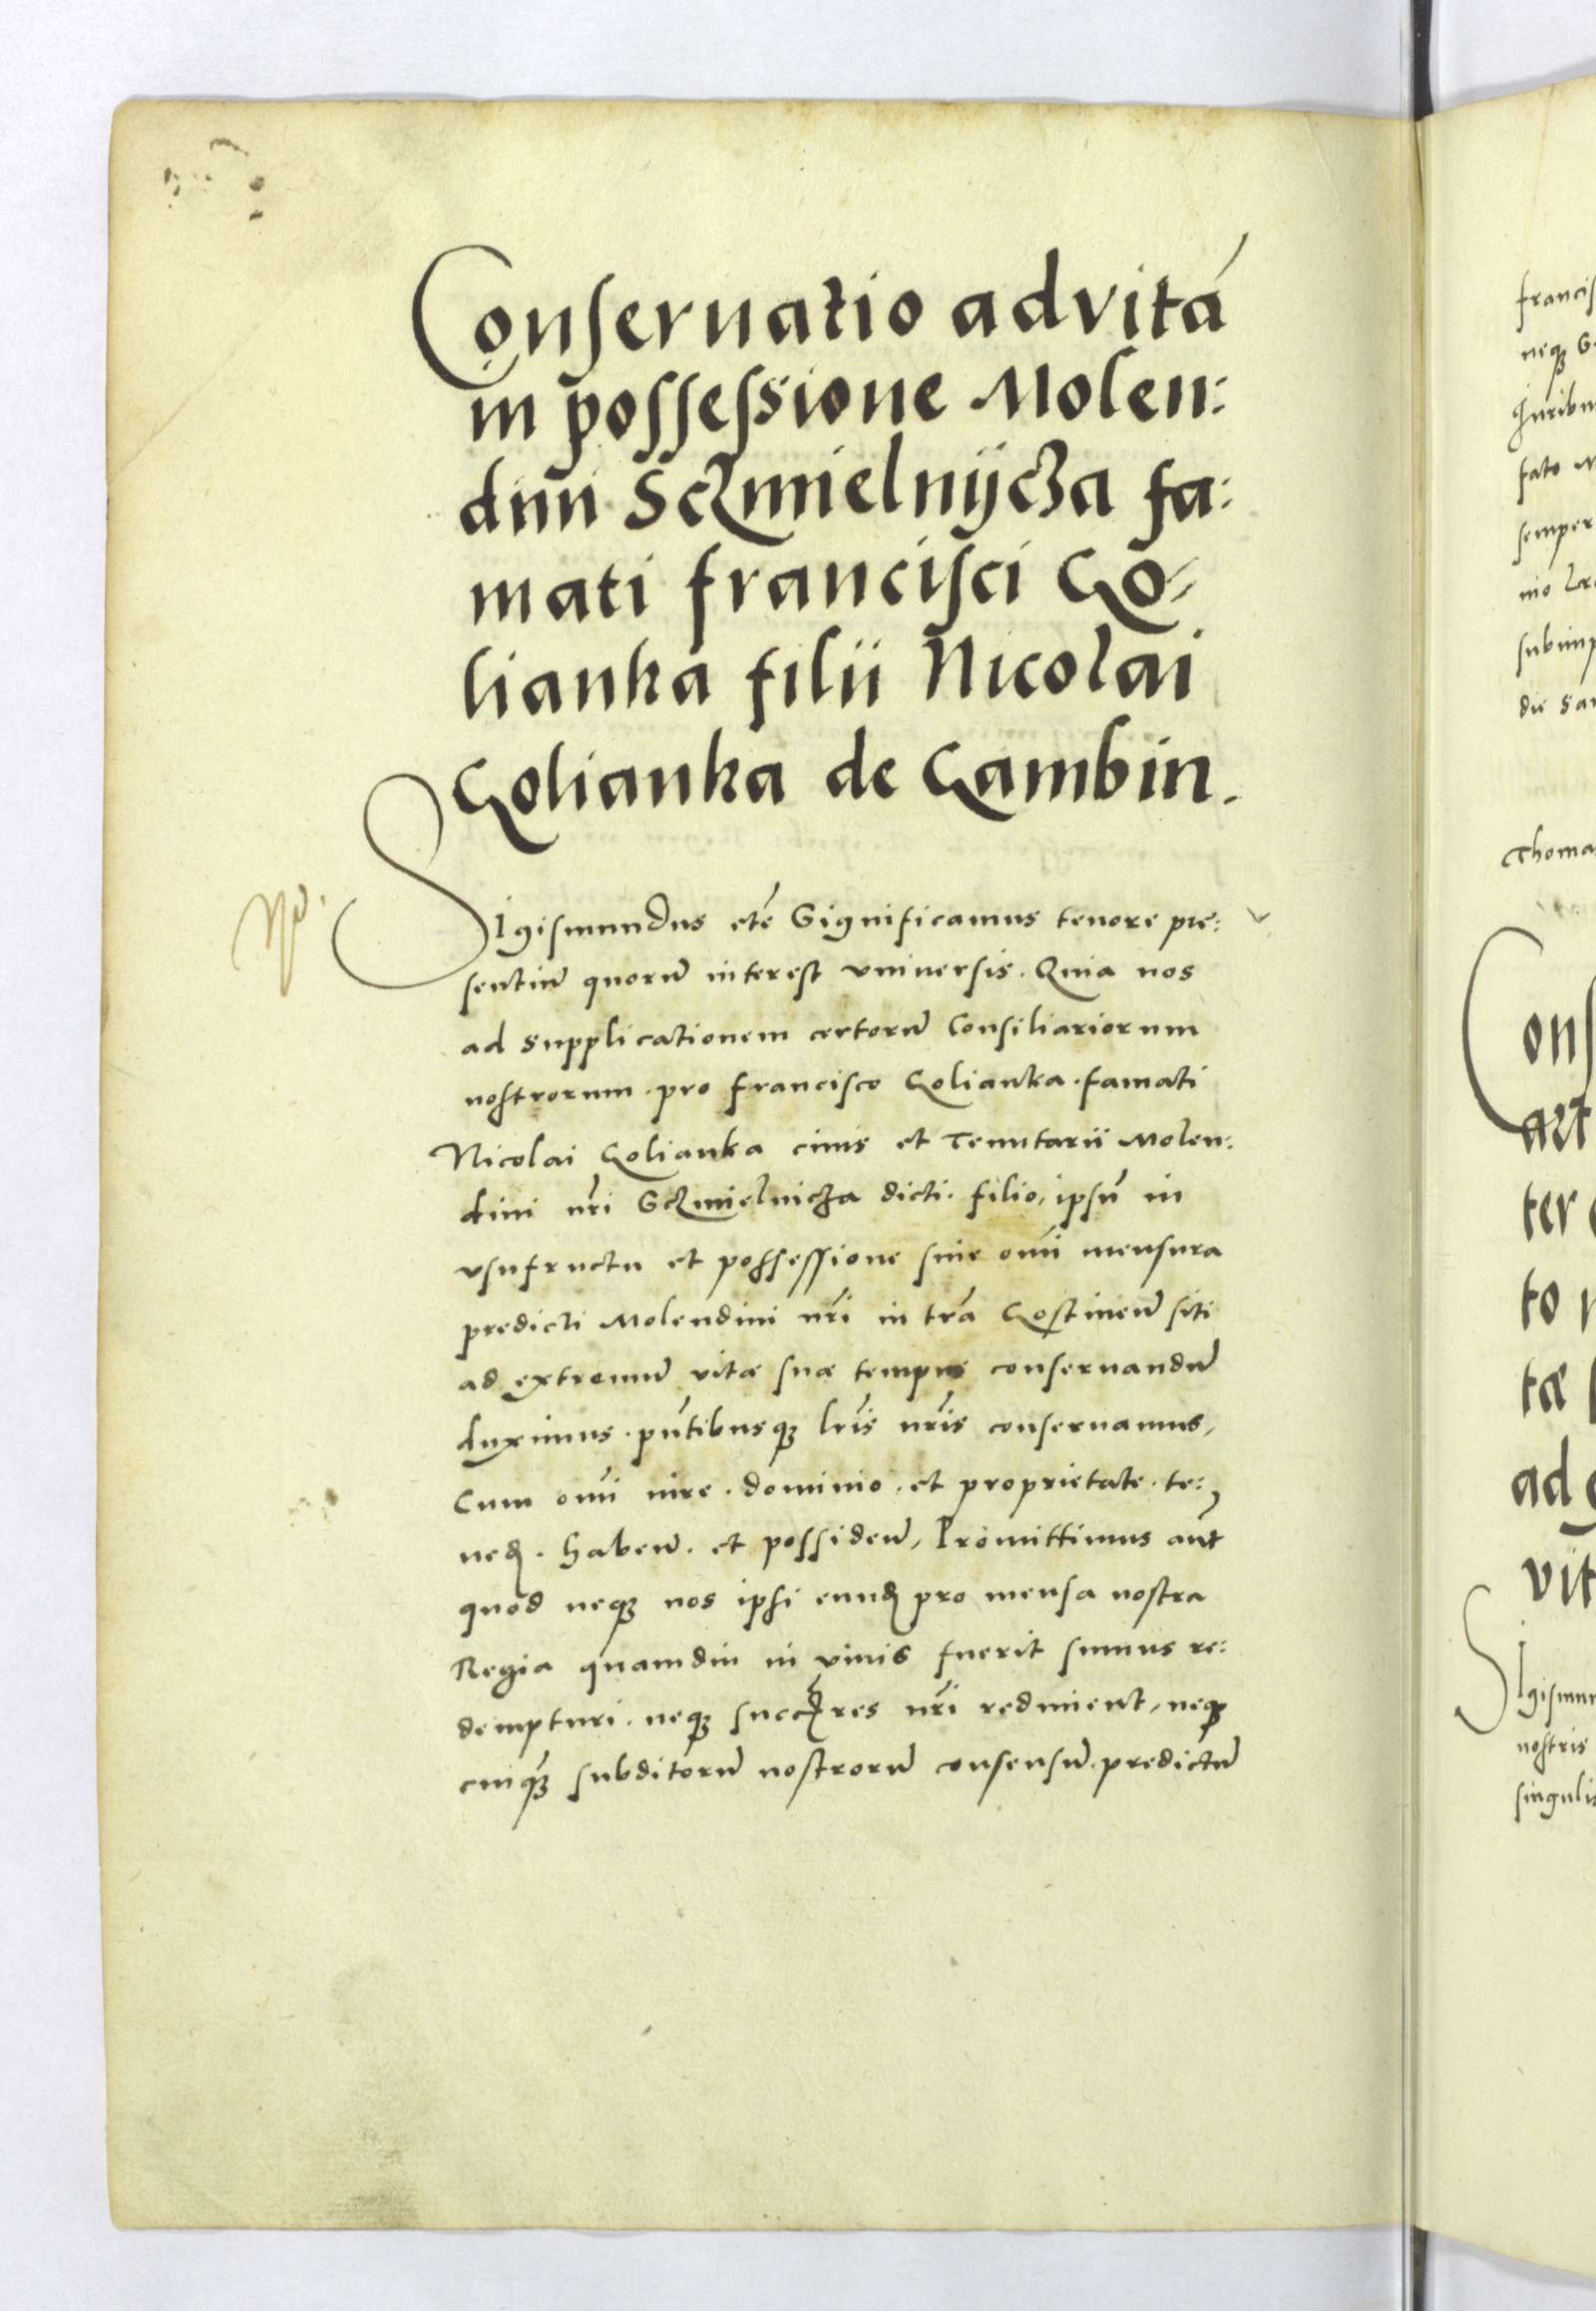 Conseruatio ad vitā
in possessione Molen:
dini Sczmielnijcza fa:
mati francisci Go-
lianka filii Nicolai
Golianka de Gambin.
Sigismundus etc̄ Significamus tenore pre:
sentiū quorū interest vniuersis. Quia nos
ad supplicationem certorū Consiliariorum
nostrorum. pro francisco Golianka. famati
Nicolai Golianka ciuis et Tenutarii Molen:
dini nr̄i Sczmielnicza dicti. filio, ipsū in
vsufructu et possessione sine om̄i mensura
predicti Molendini nr̄i in tr̄a Gostineñ siti
ad extremū vitæ suæ tempus conseruandū
duximus. pn̄tibusq₃ lr̄is nr̄is conseruamus,
Cum om̄i iure. dominio. et proprietate. te:
neđ. habeñ. et possideñ, Promittimus aūt
quod neq₃ nos ipsi eunđ pro mensa nostra
Regia quamdiu in viuis fuerit sumus re:
dempturi. neq₃ nr̄i rediment, neq₃
cuiq₃ subditorū nostrorū consensū. predictū
francis
neq₃
Juribu
fato
semper
nio
subimp
die
Thoma
Cons
art
ter
to
tæ
ad
vit
Sigismu
nostris
singulis